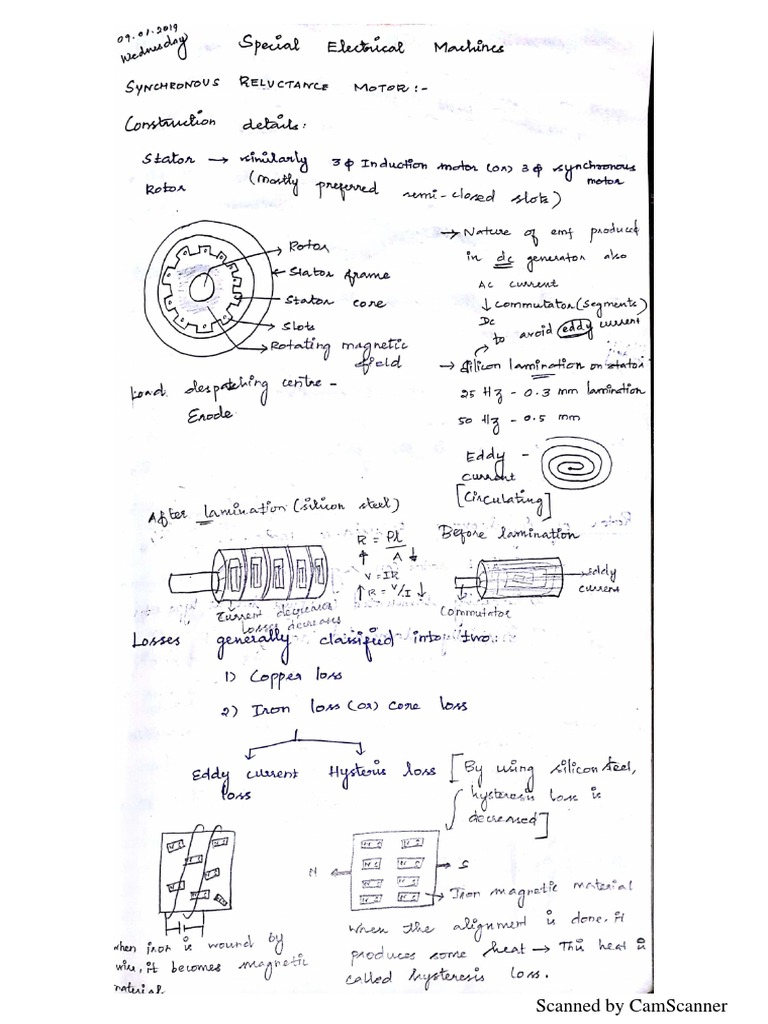 09.01.2019
Wednesday
Special Electrical Machines
SYNCHRONOUS RELUCTANCE MOTOR:-
Construction details:
Stator → similarly 3φ Induction motor (or) 3φ synchronous motor
Rotor (mostly preferred semi-closed slots)
Rotor
Stator frame
Stator core
Slots
Rotating magnetic field
Load despatching centre -
Erode
→ Nature of emf produced
in dc generator also
AC current
↓ commutator (segments)
DC
to avoid eddy current
→ Silicon lamination on stator
25 Hz - 0.3 mm lamination
50 Hz - 0.5 mm
Eddy -
current
[Circulating]
After lamination (silicon steel)
R = ρl/A ↓
↑
V = IR
↑ R = V/I ↓
Current decreases
Losses decreases
Before lamination
Eddy current
Commutator
Losses generally classified into two:
1) Copper loss
2) Iron loss (or) core loss
Eddy current loss
Hysteris loss
[By using silicon steel,
hysteresis loss is
decreased]
N S
Iron magnetic material
When iron is wound by
wire, it becomes magnetic
material.
When the alignment is done, it
produces some heat → This heat is
called hysteresis loss.
Scanned by CamScanner